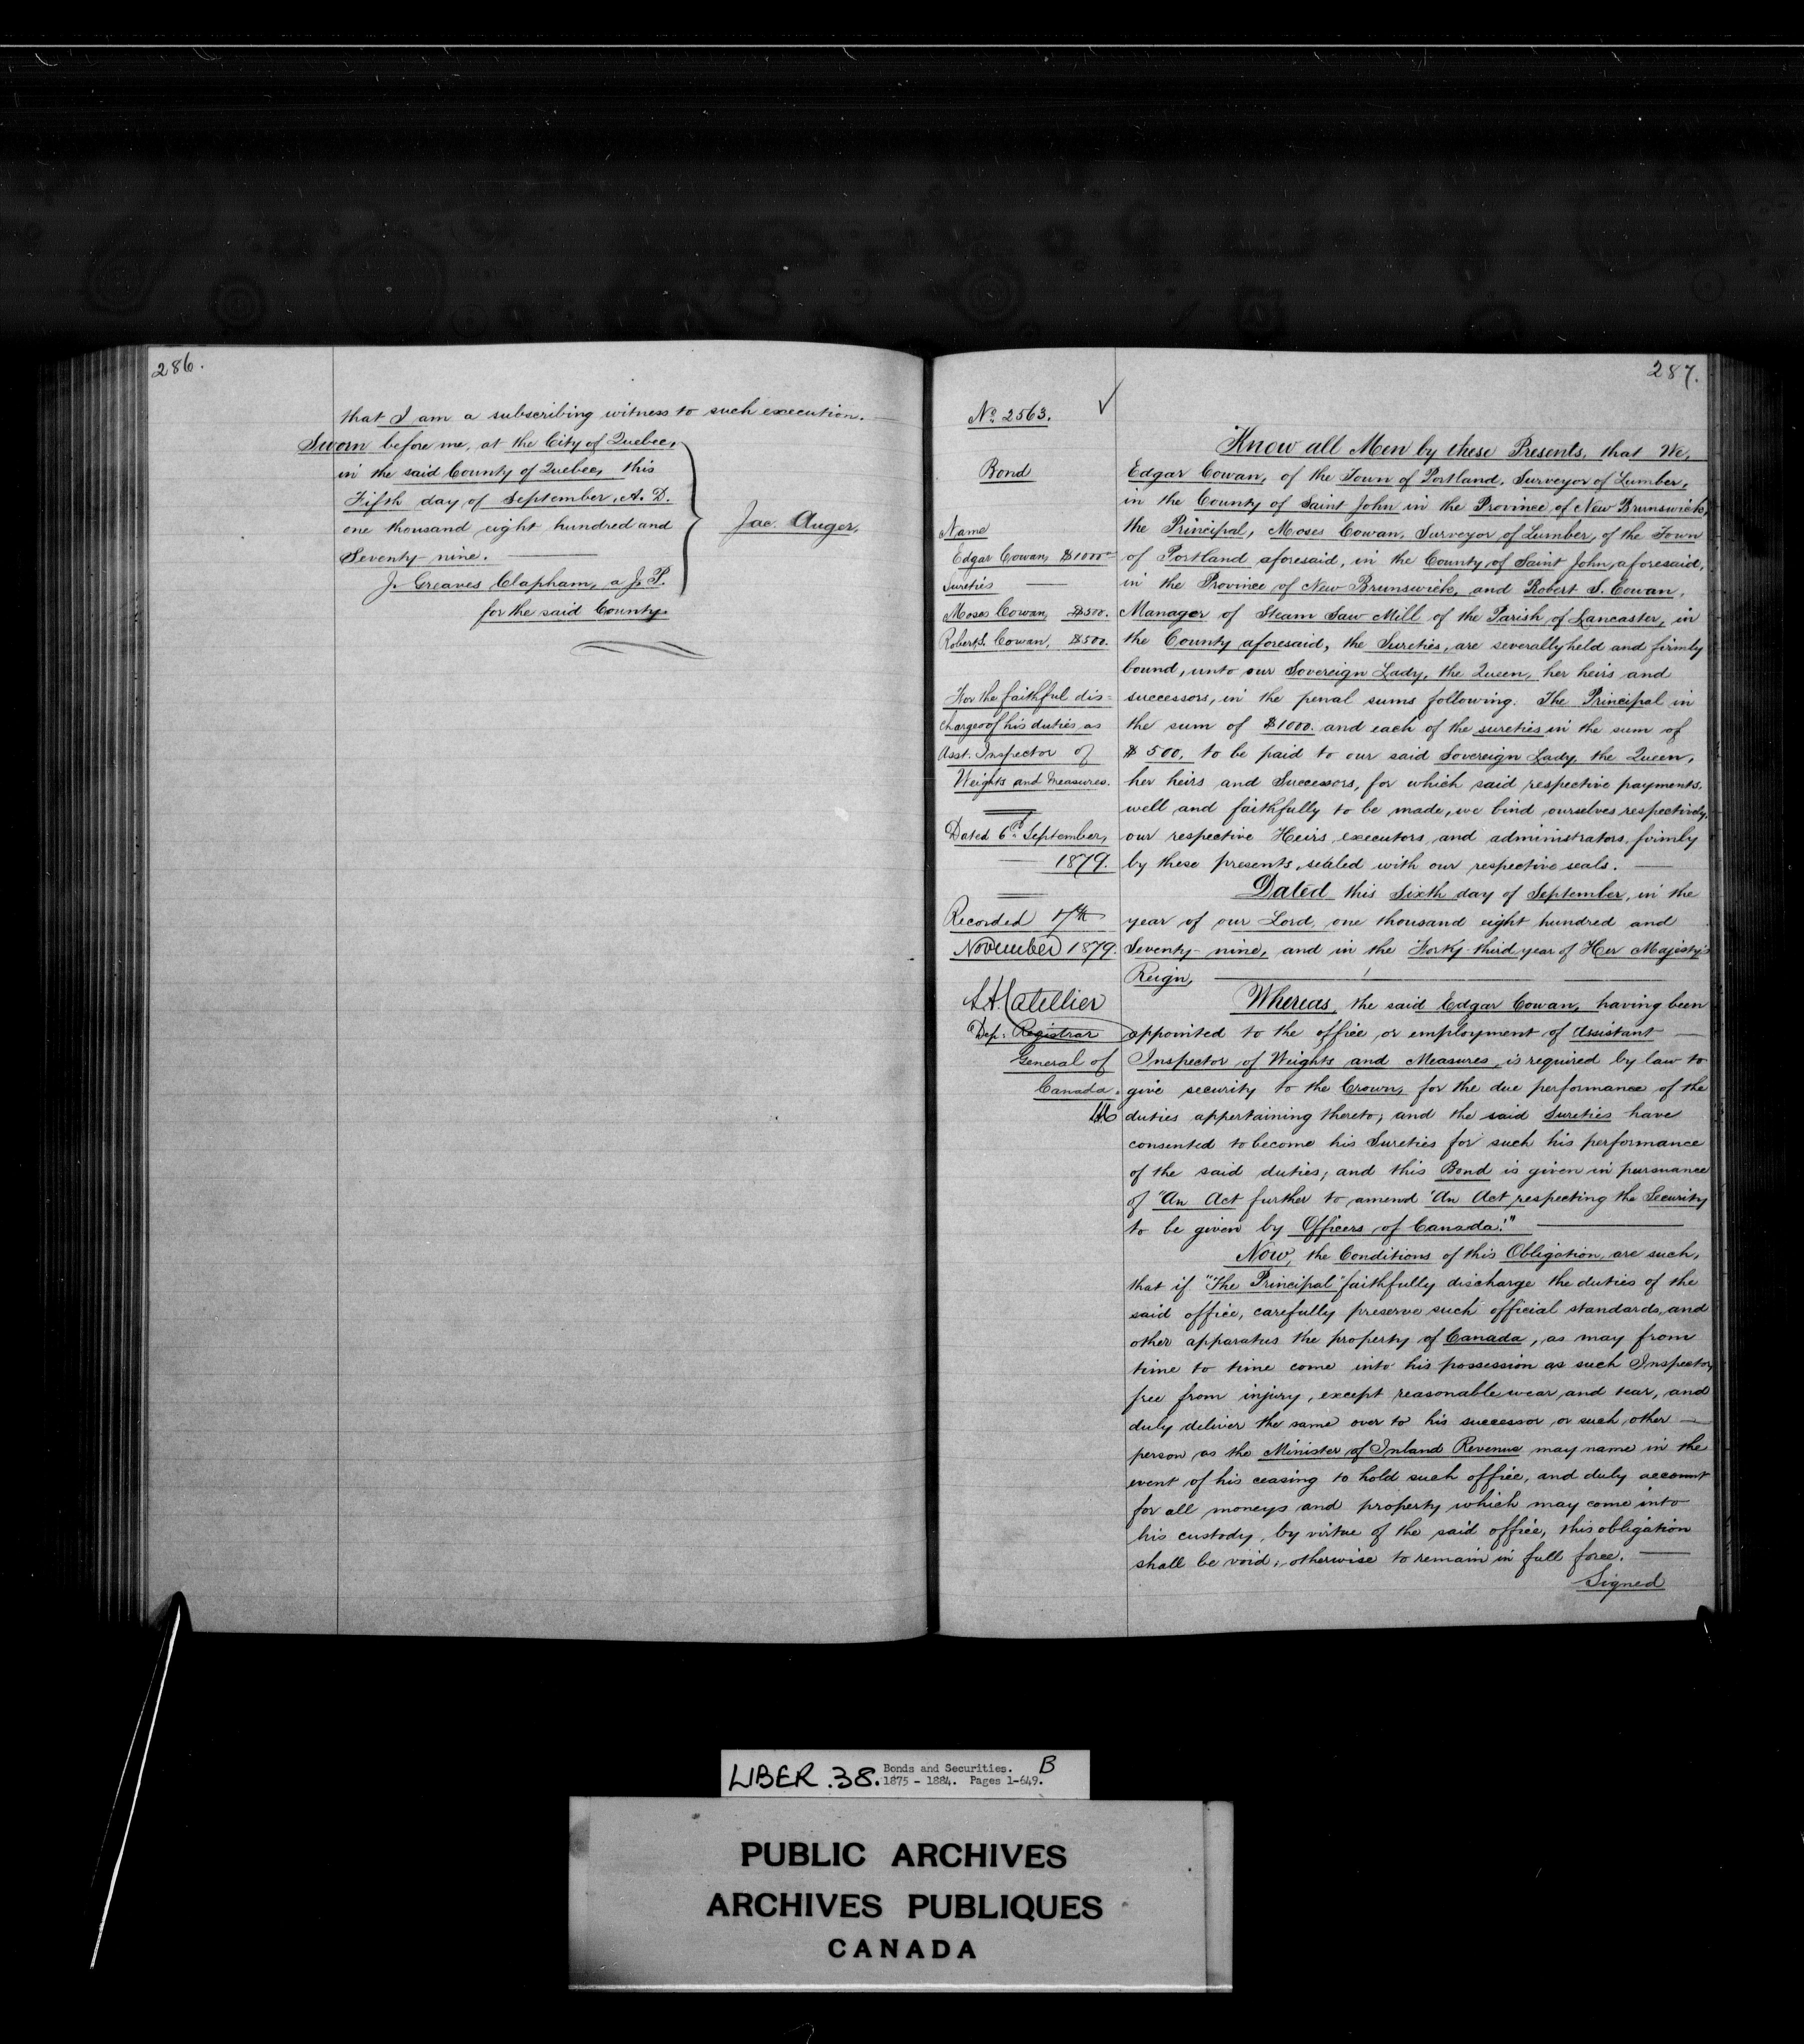 286.
that I am a subscribing witness to such execution.
Sworn before me, at the City of Quebec,
in the said County of Quebec, this
Fifth day of September, A. D.
one thousand eight hundred and
Seventy-nine.
J. Greaves Clapham, a J. P.
for the said County.
Jac. Auger.
287.
No. 2563.
Bond
Name
Edgar Cowan, $1000
Sureties
Moses Cowan, $500.
Robert S. Cowan, $500.
For the faithful dis=
charge of his duties as
Asst. Inspector of
Weights and Measures.
Dated 6th September,
1879.
Recorded 17th
November 1879.
Catellier
Dep: Registrar
General of
Canada.
Know all Men by these Presents, that We,
Edgar Cowan, of the Town of Portland, Surveyor of Lumber,
in the County of Saint John in the Province of New Brunswick,
the Principal, Moses Cowan, Surveyor of Lumber, of the Town
of Portland aforesaid, in the County of Saint John, aforesaid,
in the Province of New Brunswick, and Robert S. Cowan,
Manager of Steam Saw Mill of the Parish of Lancaster, in
the County aforesaid, the Sureties, are severally held and firmly
bound, unto our Sovereign Lady, the Queen, her heirs and
successors, in the penal sums following. The Principal in
the sum of $1000. and each of the sureties in the sum of
$500, to be paid to our said Sovereign Lady, the Queen,
her heirs and Successors, for which said respective payments,
well and faithfully to be made, we bind ourselves respectively,
our respective Heirs, executors, and administrators, firmly
by these presents, sealed with our respective seals.
Dated this Sixth day of September, in the
year of our Lord, one thousand eight hundred and
Seventy-nine, and in the Forty-third year of Her Majesty's
Reign,
Whereas, the said Edgar Cowan, having been
appointed to the office or employment of Assistant
Inspector of Weights and Measures, is required by law to
give security to the Crown, for the due performance of the
duties appertaining thereto; and the said Sureties have
consented to become his Sureties for such his performance
of the said duties; and this Bond is given in pursuance
of "An Act further to amend "An Act respecting the Security
to be given by Officers of Canada."
Now, the Conditions of this Obligation, are such,
that if "The Principal" faithfully discharge the duties of the
said office, carefully preserve such official standards, and
other apparatus the property of Canada, as may from
time to time come into his possession as such Inspector,
free from injury, except reasonable wear and tear, and
duly deliver the same over to his successor or such other
person as the Minister of Inland Revenue may name in the
event of his ceasing to hold such office, and duly account
for all moneys and property which may come into
his custody, by virtue of the said office, this obligation
shall be void, otherwise to remain in full force.
Signed
LIBER. 38. Bonds and Securities. B
1875 - 1884. Pages 1-649.
PUBLIC ARCHIVES
ARCHIVES PUBLIQUES
CANADA